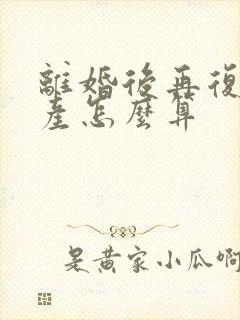 離婚後再復
產怎麼算
是黃家小瓜啊